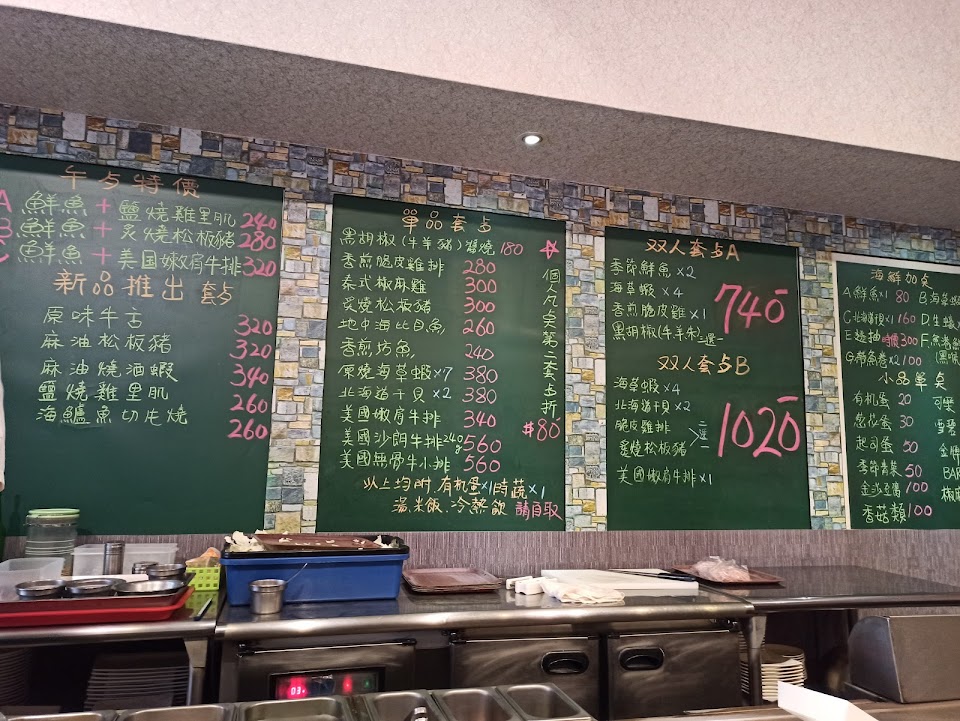 午点特價
A 鮮魚+鹽燒雞里肌 240
B 鮮魚+炙燒松板豬 280
C 鮮魚+美国嫩肩牛排 320
新品推出 套点
原味牛舌 320
麻油松板豬 320
麻油燒酒蝦 340
鹽燒雞里肌 260
海鱸魚切片燒 260
單品套点
黑胡椒(牛羊豬)醬燒 180
香煎脆皮雞排 280
泰式椒麻雞 300
炙燒松板豬 300
地中海比目魚 260
香煎坊魚 240
原燒海草蝦×7 380
北海道干貝×2 380
美國嫩肩牛排 340
美國沙朗牛排24g 560
美國無骨牛小排 560
以上均附.有机蛋×1時蔬×1
湯.米飯.冷熱飲 請自取
☆個人凡点第二套点折#80
双人套点A
季節鮮魚×2
海草蝦×4
香煎脆皮雞×1
黑胡椒(牛羊朱)二選一
740
双人套点B
海草蝦×4
北海道干貝×2
脆皮雞排
炙燒松板豬
二選一
美國嫩肩牛排×1
1020
海鮮加点
A.鮮魚×1 80 B.海草蝦
C.北海道貝×1 160 D.生蠔
E.時價300 F.魚
G.捲×2 100
小品單点
有机蛋 20 可樂
蔥花蛋 30 雪碧
起司蛋 50 金牌
季節青菜 50 BAR
金沙豆腐 100
香菇類 100